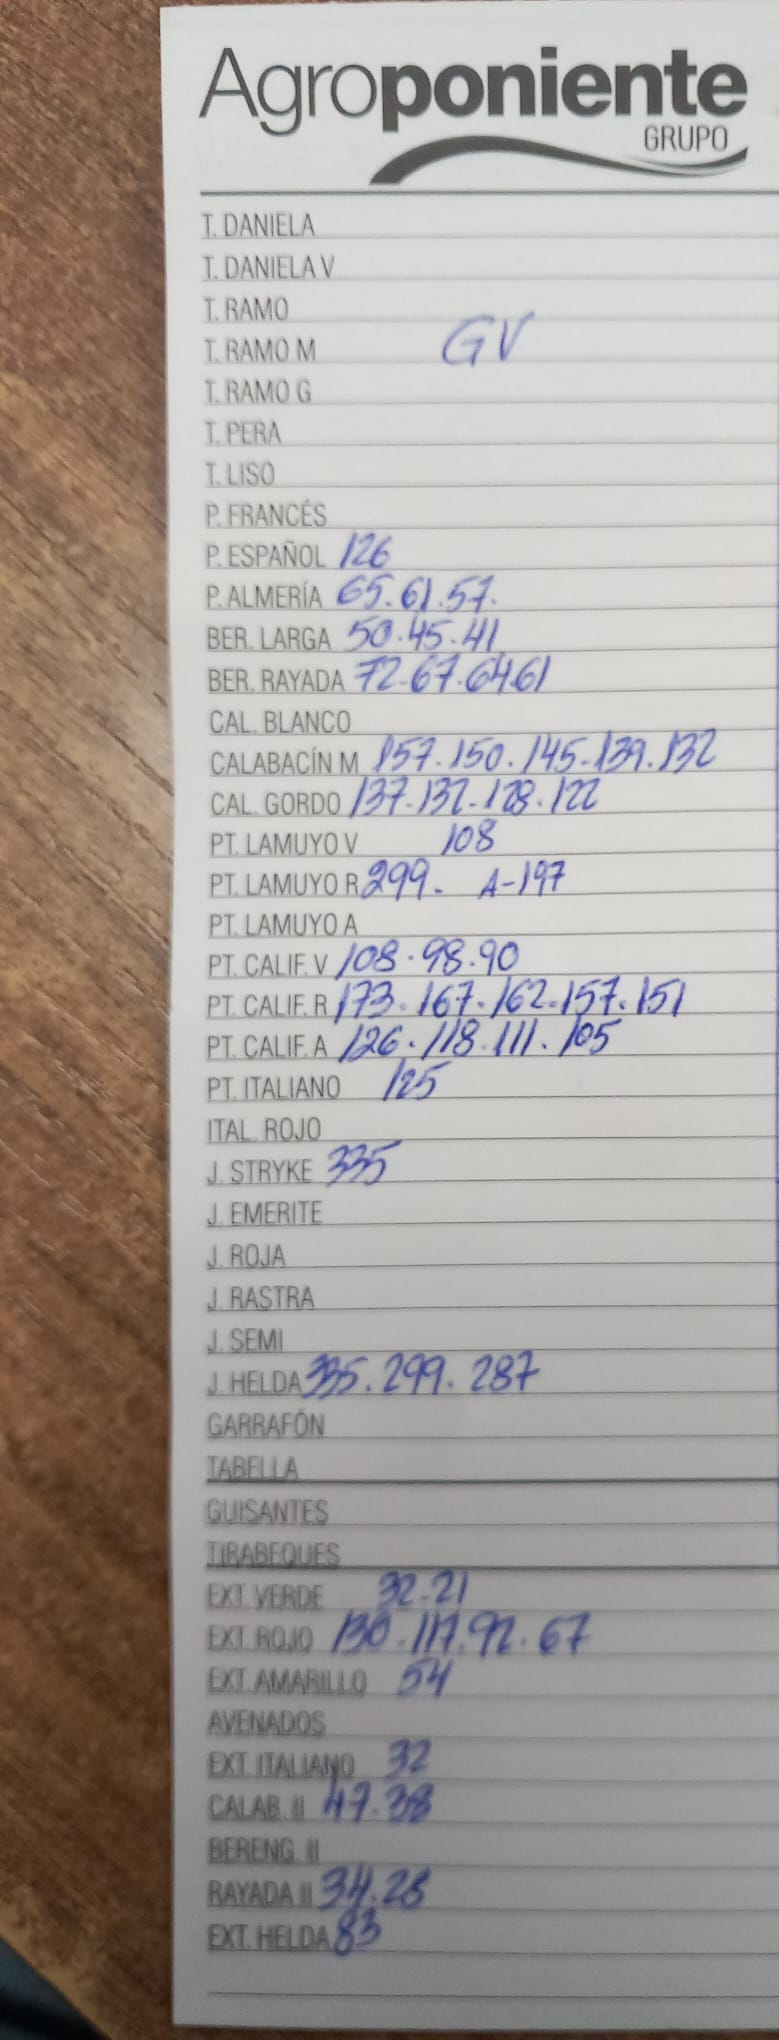 Agroponiente
GRUPO
T. DANIELA
T. DANIELA V
T. RAMO
T. RAMO M GV
T. RAMO G
T. PERA
T. LISO
P. FRANCÉS
P. ESPAÑOL 126
P. ALMERÍA 65.61.57.
BER. LARGA 50.45.41
BER. RAYADA 72-67.64.61
CAL. BLANCO
CALABACÍN M 157.150.145-139.132
CAL. GORDO 137-132-128.122
PT. LAMUYO V 108
PT. LAMUYO R 299- A-197
PT. LAMUYO A
PT. CALIF. V 108.98.90
PT. CALIF. R 173-167-162-157.151
PT. CALIF. A 126.118.111.105
PT. ITALIANO 125
ITAL. ROJO
J. STRYKE 335
J. EMERITE
J. ROJA
J. RASTRA
J. SEMI
J. HELDA 335.299.287
GARRAFÓN
TABELLA
GUISANTES
TIRABEQUES
EXT. VERDE 32-21
EXT. ROJO 130-117.92.67
EXT. AMARILLO 54
AVENADOS
EXT. ITALIANO 32
CALAB. II 47-38
BERENG. II
RAYADA II 34.28
EXT. HELDA 83